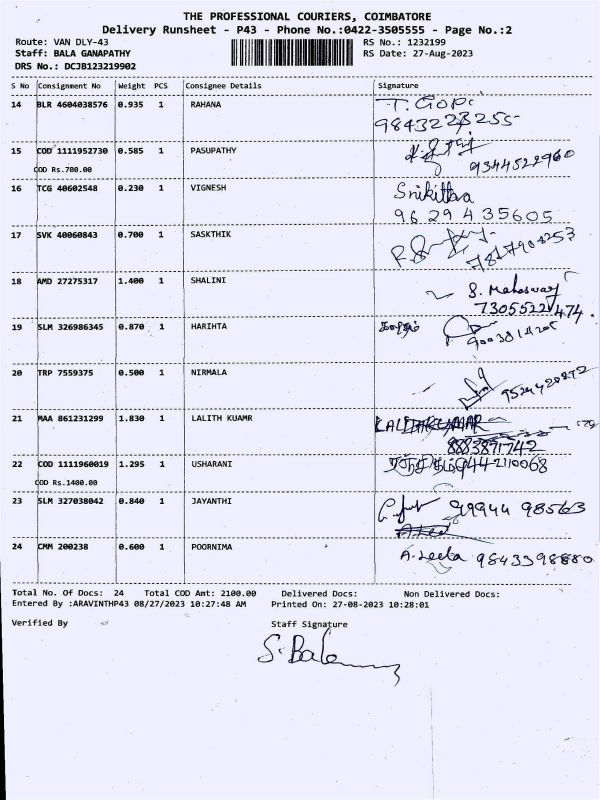 THE PROFESSIONAL COURIERS, COIMBATORE
Delivery Runsheet - P43 - Phone No.:0422-3505555 - Page No.:2
Route: VAN DLY-43 RS No.: 1232199
Staff: BALA GANAPATHY RS Date: 27-Aug-2023
DRS No.: DCJB123219902
S No Consignment No Weight PCS Consignee Details Signature
14 BLR 4604038576 0.935 1 RAHANA T. GOPI
9843223255
15 COD 1111952730 0.585 1 PASUPATHY
9344522960
COD Rs.700.00
16 TCG 40602548 0.230 1 VIGNESH Srikittha
96 29 4 35605
17 SVK 40060843 0.700 1 SASKTHIK
18 AMD 27275317 1.400 1 SHALINI S. Maheswary
7305522474.
19 SLM 326986345 0.870 1 HARIHTA
20 TRP 7559375 0.500 1 NIRMALA
9524420872
21 MAA 861231299 1.830 1 LALITH KUAMR LALITHKUMAR
8883871742
22 COD 1111960019 1.295 1 USHARANI
COD Rs.1400.00
23 SLM 327038042 0.840 1 JAYANTHI 99944 98563
24 CMM 200238 0.600 1 POORNIMA A. Leela 9843398880
Total No. Of Docs: 24 Total COD Amt: 2100.00 Delivered Docs: Non Delivered Docs:
Entered By :ARAVINTHP43 08/27/2023 10:27:48 AM Printed On: 27-08-2023 10:28:01
Verified By Staff Signature
S. Bala